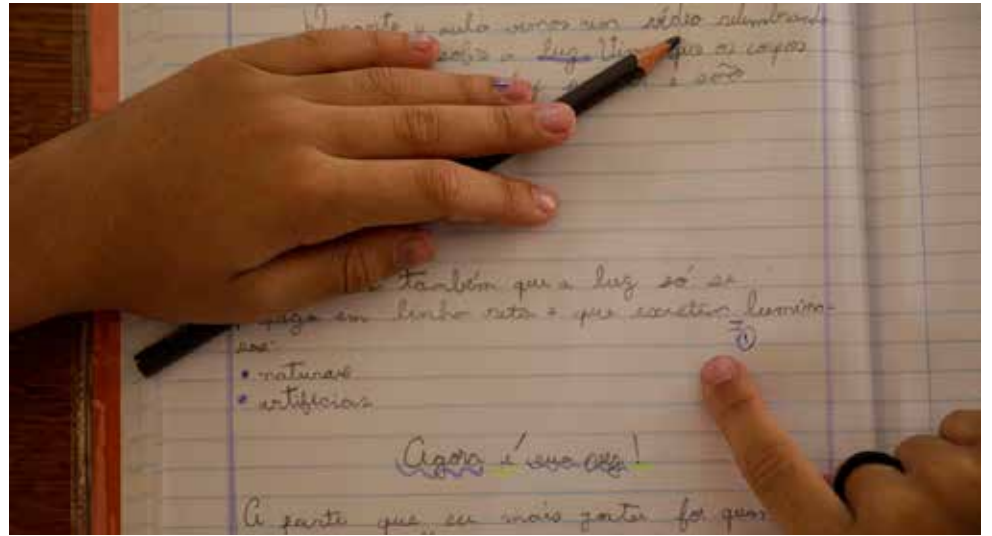 Durante a aula vimos um vídeo relembrando
sobre a luz. Vimos que os corpos
e são
também que a luz só se
em linha reta e que existem lumino-
sos:
• naturais
• artificiais
①
Agora é sua vez!
A parte que eu mais gostei foi quan